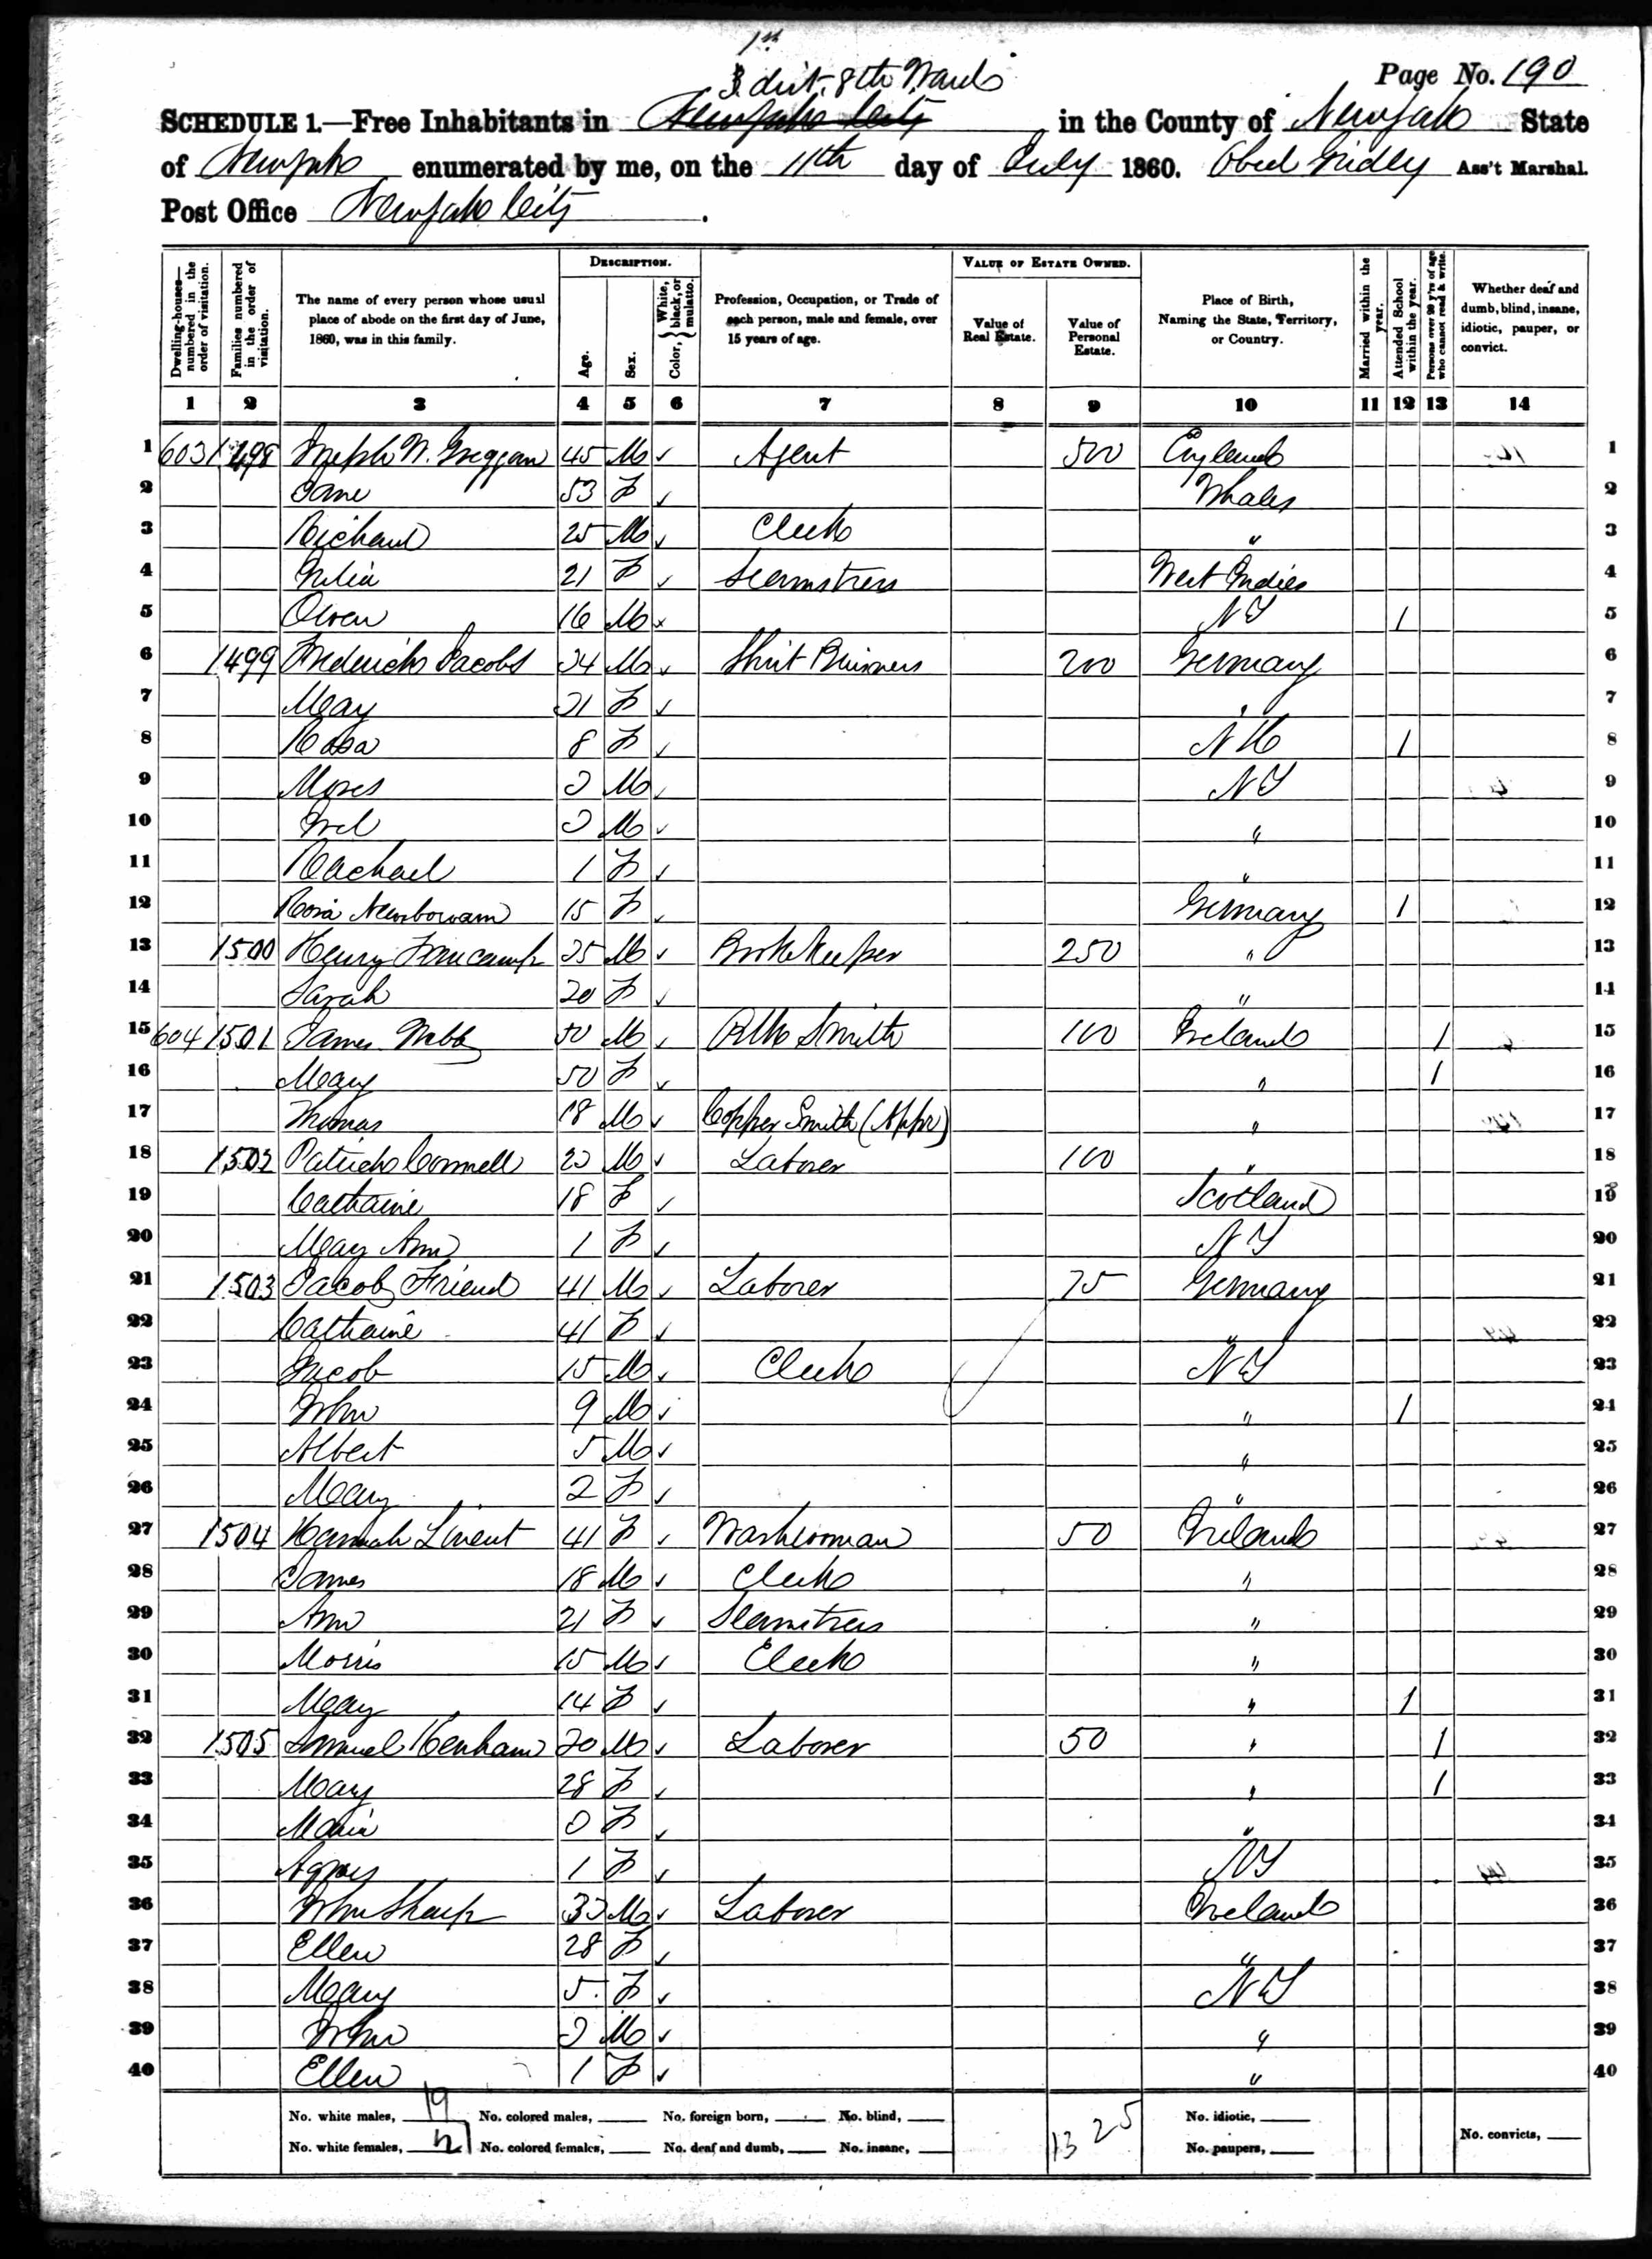 1st
3 dist. 8th Ward
Page No. 190
SCHEDULE 1.—Free Inhabitants in New York City in the County of New York State
of New York enumerated by me, on the 11th day of July 1860. Obed Gridley Ass't Marshal.
Post Office New York City.
Dwelling-houses—numbered in the order of visitation.
Families numbered in the order of visitation.
The name of every person whose usual place of abode on the first day of June, 1860, was in this family.
DESCRIPTION.
Age.
Sex.
Color, White, black, or mulatto.
Profession, Occupation, or Trade of each person, male and female, over 15 years of age.
VALUE OF ESTATE OWNED.
Value of Real Estate.
Value of Personal Estate.
Place of Birth, Naming the State, Territory, or Country.
Married within the year.
Attended School within the year.
Persons over 20 y'rs of age who cannot read & write.
Whether deaf and dumb, blind, insane, idiotic, pauper, or convict.
1 2 3 4 5 6 7 8 9 10 11 12 13 14
1 603 1498 Joseph N. Greggan 45 M Agent 500 England 1
2 Jane 53 F Whales 2
3 Richard 25 M Clerk " 3
4 Julia 21 F Seamstress West Indies 4
5 Owen 16 M NY 1 5
6 1499 Frederick Jacobs 34 M Shirt Business 200 Germany 6
7 Mary 31 F " 7
8 Rosa 8 F NY 1 8
9 Moses 3 M NY 9
10 3 M " 10
11 Rachael 1 F " 11
12 Rosa 15 F Germany 1 12
13 1500 Henry 35 M Book Keeper 250 " 13
14 Sarah 20 F " 14
15 604 1501 James Webb 50 M Blk Smith 100 Ireland 1 15
16 Mary 50 F " 1 16
17 Thomas 18 M Copper Smith (Appr) " 17
18 1502 Patrick Connell 23 M Laborer 100 " 18
19 Cathaine 18 F Scotland 19
20 Mary Ann 1 F NY 20
21 1503 Jacob Friend 41 M Laborer 75 Germany 21
22 Cathaine 41 F " 22
23 Jacob 15 M Clerk NY 23
24 John 9 M " 1 24
25 Albert 5 M " 25
26 Mary 2 F " 26
27 1504 Hannah 41 F Washwoman 50 Ireland 27
28 James 18 M Clerk " 28
29 Ann 21 F Seamstress " 29
30 Morris 15 M Clerk " 30
31 Mary 14 F " 1 31
32 1505 Samuel Kenham 30 M Laborer 50 " 1 32
33 Mary 28 F " 1 33
34 Maria 3 F " 34
35 Agnes 1 F NY 35
36 John Sharp 33 M Laborer Ireland 36
37 Ellen 28 F " 37
38 Mary 5 F NY 38
39 John 3 M " 39
40 Ellen 1 F " 40
No. white males, 19 No. colored males, No. foreign born, No. blind, 1325 No. idiotic,
No. white females, 21 No. colored females, No. deaf and dumb, No. insane, No. paupers, No. convicts,